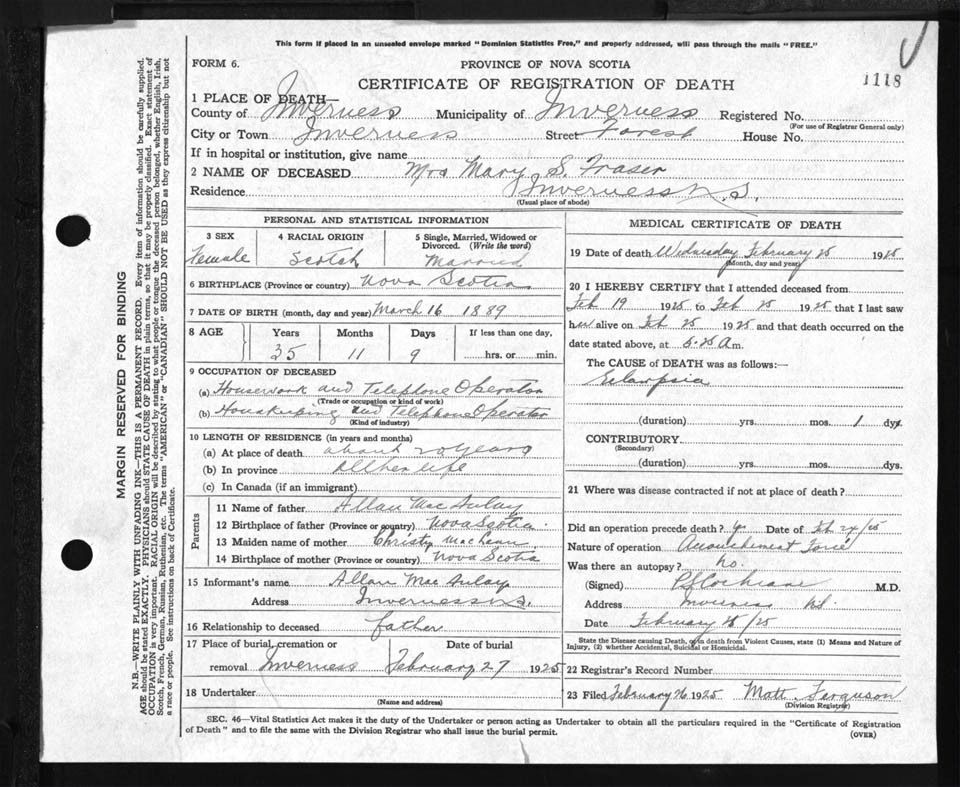 This form if placed in an unsealed envelope marked "Dominion Statistics Free," and properly addressed, will pass through the mails "FREE."
FORM 6.
PROVINCE OF NOVA SCOTIA
CERTIFICATE OF REGISTRATION OF DEATH
1118
1 PLACE OF DEATH—
County of Inverness Municipality of Inverness Registered No.
(For use of Registrar General only)
City or Town Inverness Street Forest House No.
If in hospital or institution, give name
2 NAME OF DECEASED Mrs Mary S. Fraser
Residence Inverness N.S.
(Usual place of abode)
MARGIN RESERVED FOR BINDING
N.B.—WRITE PLAINLY WITH UNFADING INK—THIS IS A PERMANENT RECORD. Every item of information should be carefully supplied.
AGE should be stated EXACTLY. PHYSICIANS should STATE CAUSE OF DEATH in plain terms, so that it may be properly classified. Exact statement of
OCCUPATION is very important. RACIAL ORIGIN will be described by stating to what people or tongue the deceased person belonged, whether English, Irish,
Scotch, French, German, Russian, Ruthenian, etc. The terms "AMERICAN" or "CANADIAN" SHOULD NOT BE USED as they express citizenship but not
a race or people. See instructions on back of Certificate.
PERSONAL AND STATISTICAL INFORMATION
3 SEX
Female
4 RACIAL ORIGIN
Scotch
5 Single, Married, Widowed or
Divorced. (Write the word)
Married
6 BIRTHPLACE (Province or country) Nova Scotia
7 DATE OF BIRTH (month, day and year) March 16 1889
8 AGE Years Months Days If less than one day,
35 11 9 hrs. or min.
9 OCCUPATION OF DECEASED
(a) Housework and Telephone Operator
(Trade or occupation or kind of work)
(b) Housekeeping and Telephone Operator
(Kind of industry)
10 LENGTH OF RESIDENCE (in years and months)
(a) At place of death about 20 years
(b) In province All her life
(c) In Canada (if an immigrant)
Parents
11 Name of father Allan MacAulay
12 Birthplace of father (Province or country) Nova Scotia.
13 Maiden name of mother Christy MacLean
14 Birthplace of mother (Province or country) Nova Scotia
15 Informant's name Allan MacAulay
Address Inverness N.S.
16 Relationship to deceased father
17 Place of burial, cremation or Date of burial
removal Inverness February 27 1925
18 Undertaker
(Name and address)
MEDICAL CERTIFICATE OF DEATH
19 Date of death Wednesday February 25 1925
(Month, day and year)
20 I HEREBY CERTIFY that I attended deceased from
Feb 19 1925 to Feb 25 1925 that I last saw
her alive on Feb 25 1925 and that death occurred on
date stated above, at 5.25 A m.
The CAUSE of DEATH was as follows:—
Eclampsia
(duration) yrs. mos. 1 dys.
CONTRIBUTORY
(Secondary)
(duration) yrs. mos. dys.
21 Where was disease contracted if not at place of death?
Did an operation precede death? Yes Date of Feb 24/25
Nature of operation Accouchement Forcé
Was there an autopsy? No.
(Signed) Cochrane M.D.
Address Inverness N.S.
Date February 25/25
State the Disease causing Death, or in death from Violent Causes, state (1) Means and Nature of
Injury, (2) whether Accidental, Suicidal or Homicidal.
22 Registrar's Record Number
23 Filed February 26 1925 Matt. Ferguson
(Division Registrar)
SEC. 46—Vital Statistics Act makes it the duty of the Undertaker or person acting as Undertaker to obtain all the particulars required in the "Certificate of Registration
of Death" and to file the same with the Division Registrar who shall issue the burial permit.
(OVER)